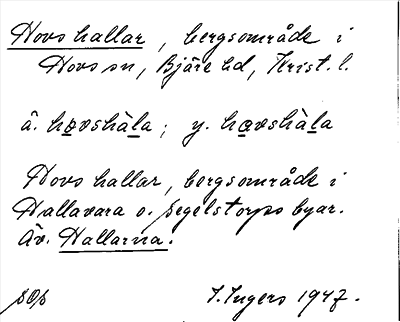 Hovs hallar, bergsområde i
Hovs sn, Bjäre hd, Krist. l.
ä. hovshàla; y. havshàla
Hovs hallar, bergsområde i
Hallavara o. Segelstorps byar.
Äv. Hallarna.
I. Ingers 1947.